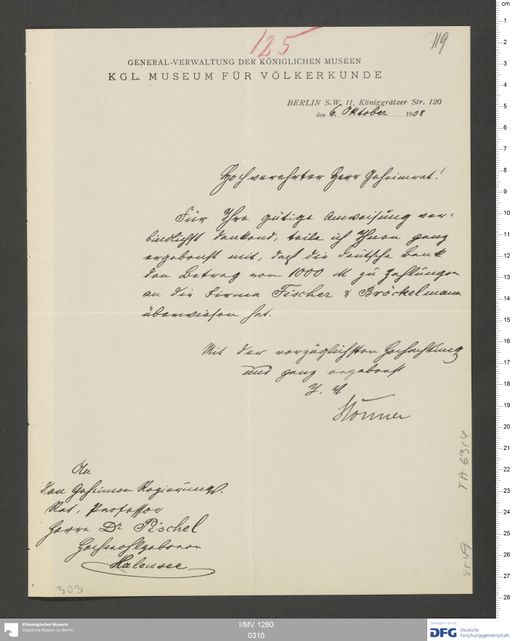 125
119
GENERAL-VERWALTUNG DER KÖNIGLICHEN MUSEEN
KGL. MUSEUM FÜR VÖLKERKUNDE
BERLIN S.W. 11, Königgrätzer Str. 120
den 6. Oktober 1908
Hochverehrter Herr Geheimrat!
Für Ihre gütige Anweisung ver-
bindlichst dankend, teile ich Ihnen ganz
ergebenst mit, daß die deutsche Bank
den Betrag von 1000 M zu Zahlungen
an die Firma Fischer & Bröckelmann
überwiesen hat.
Mit der vorzüglichsten Hochachtung
und ganz ergebenst
I. A.
Stönner
An
den Geheimen Regierungs-
Rat, Professor
Herrn Dr. Pischel
Hochwohlgeboren
Halensee
303
TA 6314
Ethnologisches Museum
Staatliche Museen zu Berlin
I/MV 1280
0310
DFG Deutsche
Forschungsgemeinschaft
cm
1
2
3
4
5
6
7
8
9
10
11
12
13
14
15
16
17
18
19
20
21
22
23
24
25
26
27
28